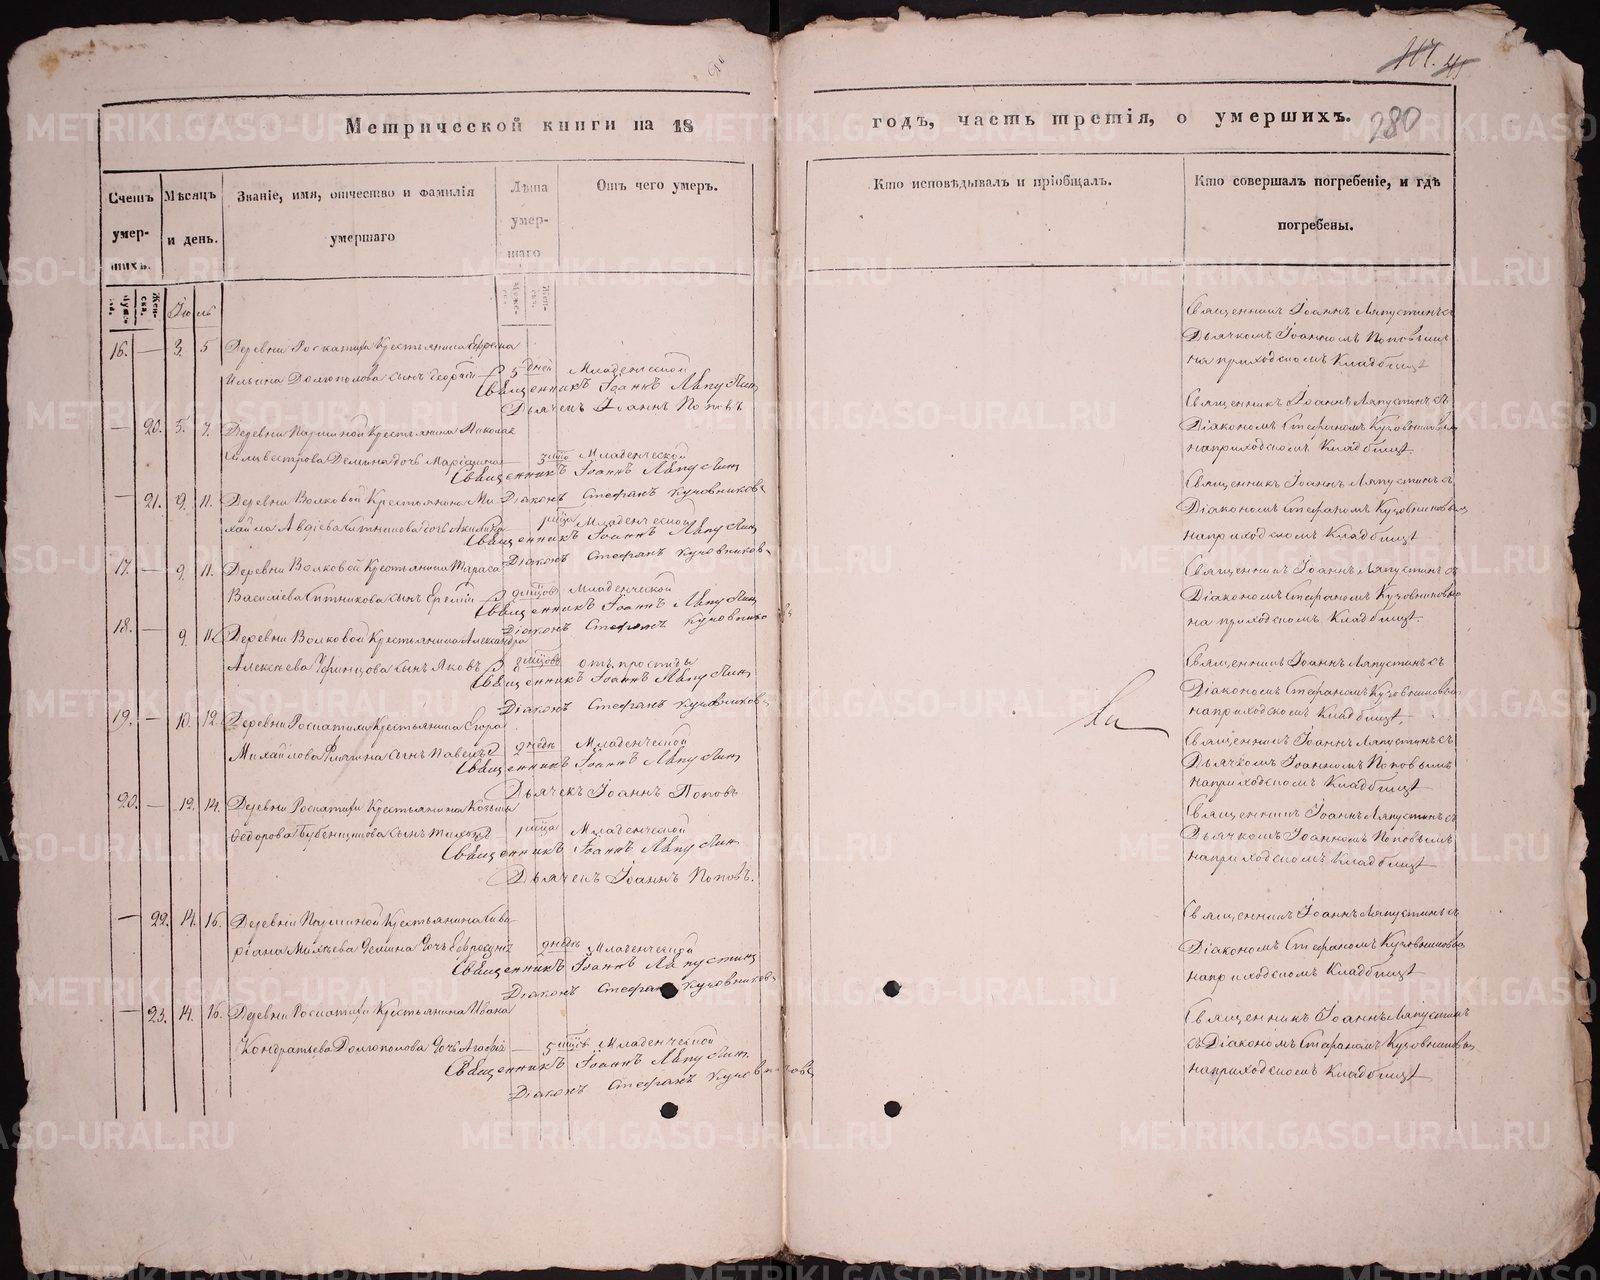 117. 41
280
Метрической книги на 18
годъ, часть третія, о умершихъ.
Счетъ умер-шихъ.
Мѣсяцъ и день.
Званіе, имя, отчество и фамилія умершаго
Лѣта умер-шаго
Отъ чего умеръ.
Кто исповѣдывалъ и пріобщалъ.
Кто совершалъ погребеніе, и гдѣ погребены.
Мужеска. Женска. Іюль
16. — 3. 5 Деревни Роскатихи Крестьянина Ефрема
Ильина Долгополова сынъ Георгій 5 дней Младенческой
Священникъ Іоаннъ Ляпустин
Дьячекъ Іоаннъ Поповъ
Священникъ Іоаннъ Ляпустинъ съ
Дьячкомъ Іоанномъ Поповымъ
на приходскомъ Кладбищѣ
— 20. 5. 7. Деревни Крестьянина Николая
Силивестрова дочь Младенческой
Священникъ Іоаннъ Ляпустин
Діаконъ Стефанъ Кузовниковъ
Священникъ Іоаннъ Ляпустинъ съ
Діакономъ Стефаномъ Кузовниковым
на приходскомъ Кладбищѣ
— 21. 9. 11. Деревни Волковой Крестьянина Ми
хайла Авдіева Ситникова дочь Акилина 1 мца Младенческой
Священникъ Іоаннъ Ляпустин
Діаконъ Стефанъ Кузовниковъ
Священникъ Іоаннъ Ляпустинъ съ
Діакономъ Стефаномъ Кузовниковым
на приходскомъ Кладбищѣ
17. — 9. 11. Деревни Волковой Крестьянина Тараса
Василіева Ситникова сынъ Еремій мцовъ Младенческой
Священникъ Іоаннъ Ляпустин
Діаконъ Стефанъ Кузовниковъ
Священникъ Іоаннъ Ляпустинъ съ
Діакономъ Стефаномъ Кузовниковы
на приходскомъ Кладбищѣ
18. — 9. 11. Деревни Волковой Крестьянина Александра
Алексѣева сынъ Яковъ 8 мцовъ отъ простуды
Священникъ Іоаннъ Ляпустин
Діаконъ Стефанъ Кузовниковъ
Священникъ Іоаннъ Ляпустинъ съ
Діакономъ Стефаномъ Кузовниковы
на приходскомъ Кладбищѣ
19. — 10. 12. Деревни Роскатихи Крестьянина Егора
Михайлова сынъ Павелъ 2 недѣль Младенческой
Священникъ Іоаннъ Ляпустин
Дьячекъ Іоаннъ Поповъ
Священникъ Іоаннъ Ляпустинъ съ
Дьячкомъ Іоанномъ Поповымъ
на приходскомъ Кладбищѣ
20. — 12. 14. Деревни Роскатихи Крестьянина Козьмы
Федорова Бубенщикова сынъ 1 мца Младенческой
Священникъ Іоаннъ Ляпустин
Дьячекъ Іоаннъ Поповъ.
Священникъ Іоаннъ Ляпустинъ съ
Дьячкомъ Іоанномъ Поповымъ
на приходскомъ Кладбищѣ
— 22. 14. 16. Деревни Крестьянина Кипріана дочь Евфросинія недѣль Младенческой
Священникъ Іоаннъ Ляпустинъ
Діаконъ Стефанъ Кузовниковъ
Священникъ Іоаннъ Ляпустинъ съ
Діакономъ Стефаномъ Кузовниковы
на приходскомъ Кладбищѣ
— 23. 14. 16. Деревни Роскатихи Крестьянина Ивана
Кондратьева Долгополова дочь Агафія 5 мцовъ Младенческой
Священникъ Іоаннъ Ляпустин
Діаконъ Стефанъ Кузовниковъ
Священникъ Іоаннъ Ляпустинъ
съ Діакономъ Стефаномъ Кузовниковы
на приходскомъ Кладбищѣ
METRIKI.GASO-URAL.RU